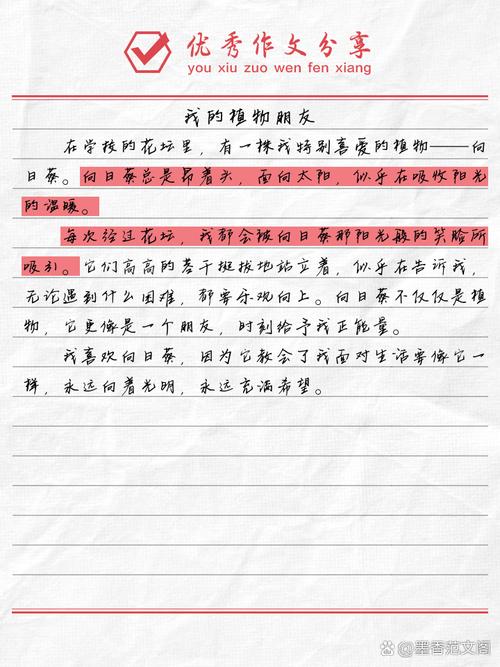 优秀作文分享
you xiu zuo wen fen xiang
我的植物朋友
在学校的花坛里，有一株我特别喜爱的植物——向
日葵。向日葵总是昂着头，面向太阳，似乎在吸收阳光
的温暖。
每次经过花坛，我都会被向日葵那阳光般的笑脸所
吸引。它们高高的茎干挺拔地站立着，似乎在告诉我，
无论遇到什么困难，都要乐观向上。向日葵不仅仅是植
物，它更像是一个朋友，时刻给予我正能量。
我喜欢向日葵，因为它教会了我面对生活要像它一
样，永远向着光明，永远充满希望。
@墨香范文阁